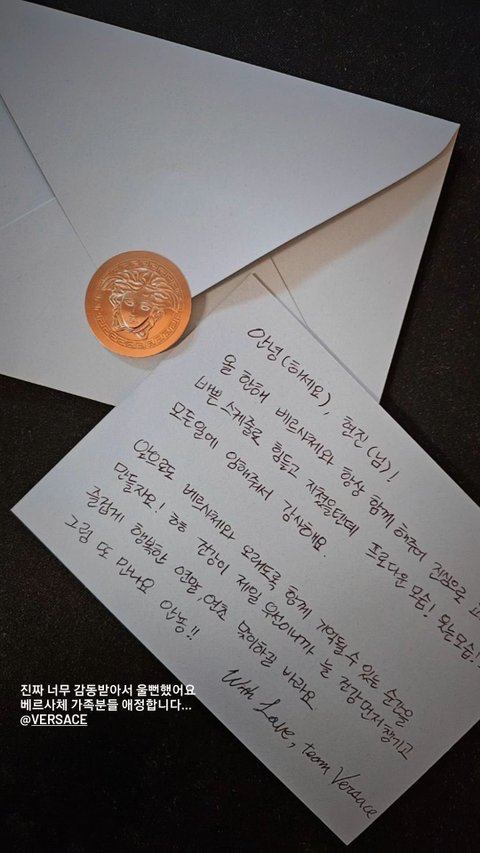 안녕(하세요), 현진(님)!
올 한해 베르사체와 항상 함께 해주어 진심으로
바쁜 스케줄로 힘들고 지쳤을텐데 프로다운 모습! 웃는모습!!
모든일에 임해줘서 감사해요.
앞으로도 베르사체와 오래도록 함께 기억될 수 있는 순간을
만들자요! 건강이 제일 우선이니까 늘 건강먼저 챙기고
즐겁게 행복한 연말,연초 맞이하길 바라요
그럼 또 만나요 안뇽!!
With Love, team Versace
진짜 너무 감동받아서 울뻔했어요
베르사체 가족분들 애정합니다...
@VERSACE